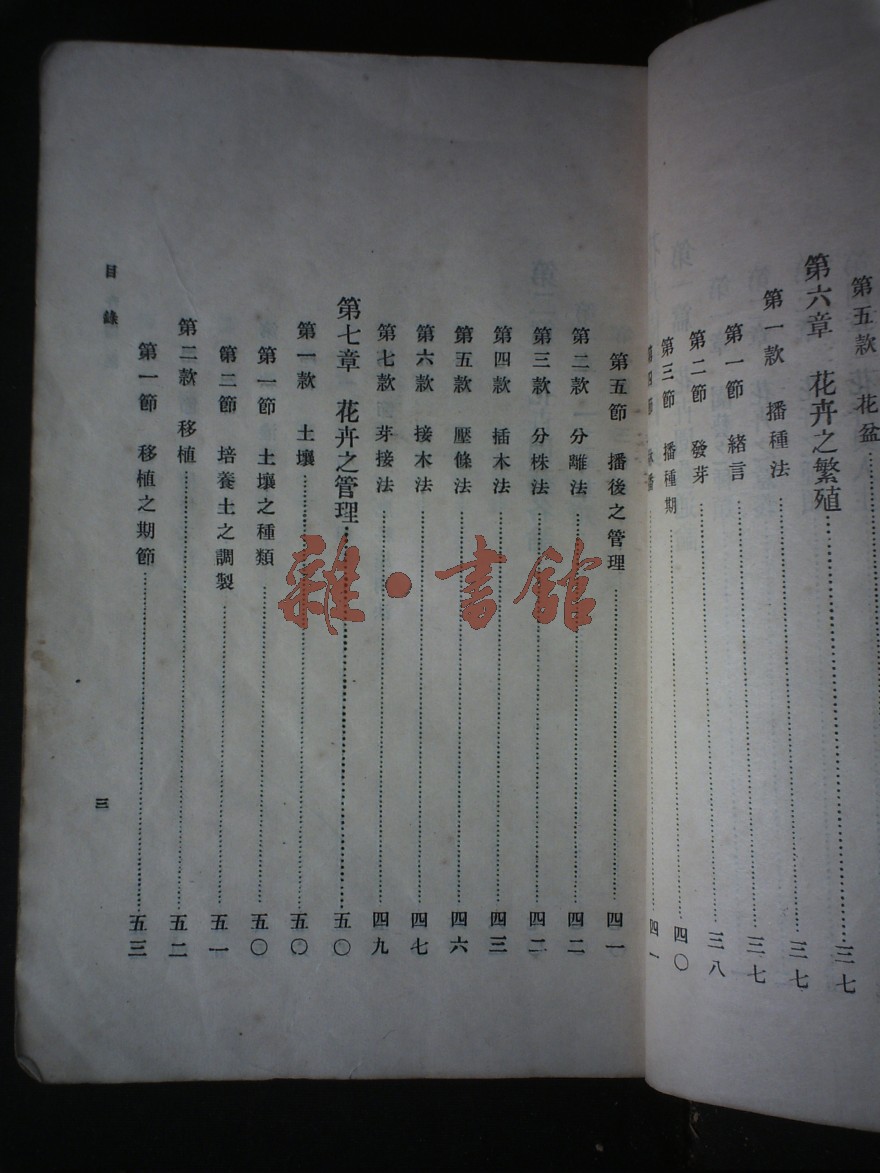 第五款 花盆
第六章 花卉之繁殖……三七
第一款 播種法……三七
第一節 緒言……三七
第二節 發芽……三八
第三節 播種期……四〇
第四節……四一
第五節 播後之管理……四一
第二款 分離法……四二
第三款 分株法……四二
第四款 插木法……四三
第五款 壓條法……四六
第六款 接木法……四七
第七款 芽接法……四九
第七章 花卉之管理……五〇
第一款 土壤……五〇
第一節 土壤之種類……五〇
第二節 培養土之調製……五一
第二款 移植……五二
第一節 移植之期節……五三
目錄
三
雜·書館